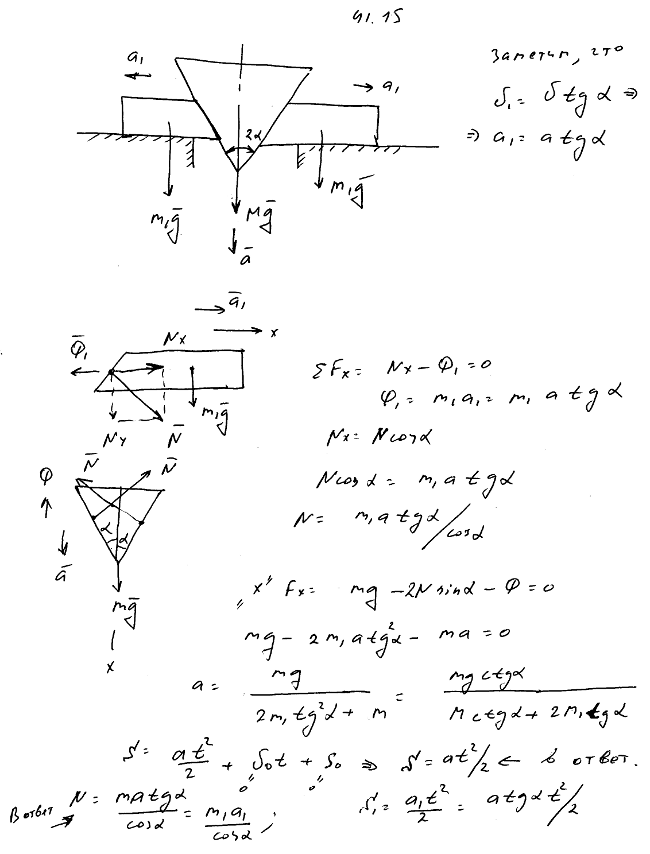 41.15
Заметим, что
δ₁ = δ tg α ⇒
⇒ a₁ = a tg α
a₁
a₁
2α
m₁g̅
Mg̅
m₁g̅
a̅
a̅₁
x
Nx
Φ̅₁
m₁g̅
Ny
N̅
ΣFx = Nx − Φ₁ = 0
Φ₁ = m₁a₁ = m₁ a tg α
Nx = N cosα
N cosα = m₁ a tgα
N = m₁ a tgα / cosα
N̅
N̅
Φ
α
α
a̅
mg̅
x
"x" Fx = mg − 2N sinα − Φ = 0
mg − 2m₁ a tg²α − ma = 0
a = mg / (2m₁ tg²α + m) = mg ctgα / (M ctgα + 2M₁ tgα)
S = at²/2 + S₀t + S₀ ⇒ S = at²/2 ← в ответ.
0
0
В ответ → N = m a tgα / cosα = m₁a₁ / cosα ;
S₁ = a₁t²/2 = a tgα t²/2